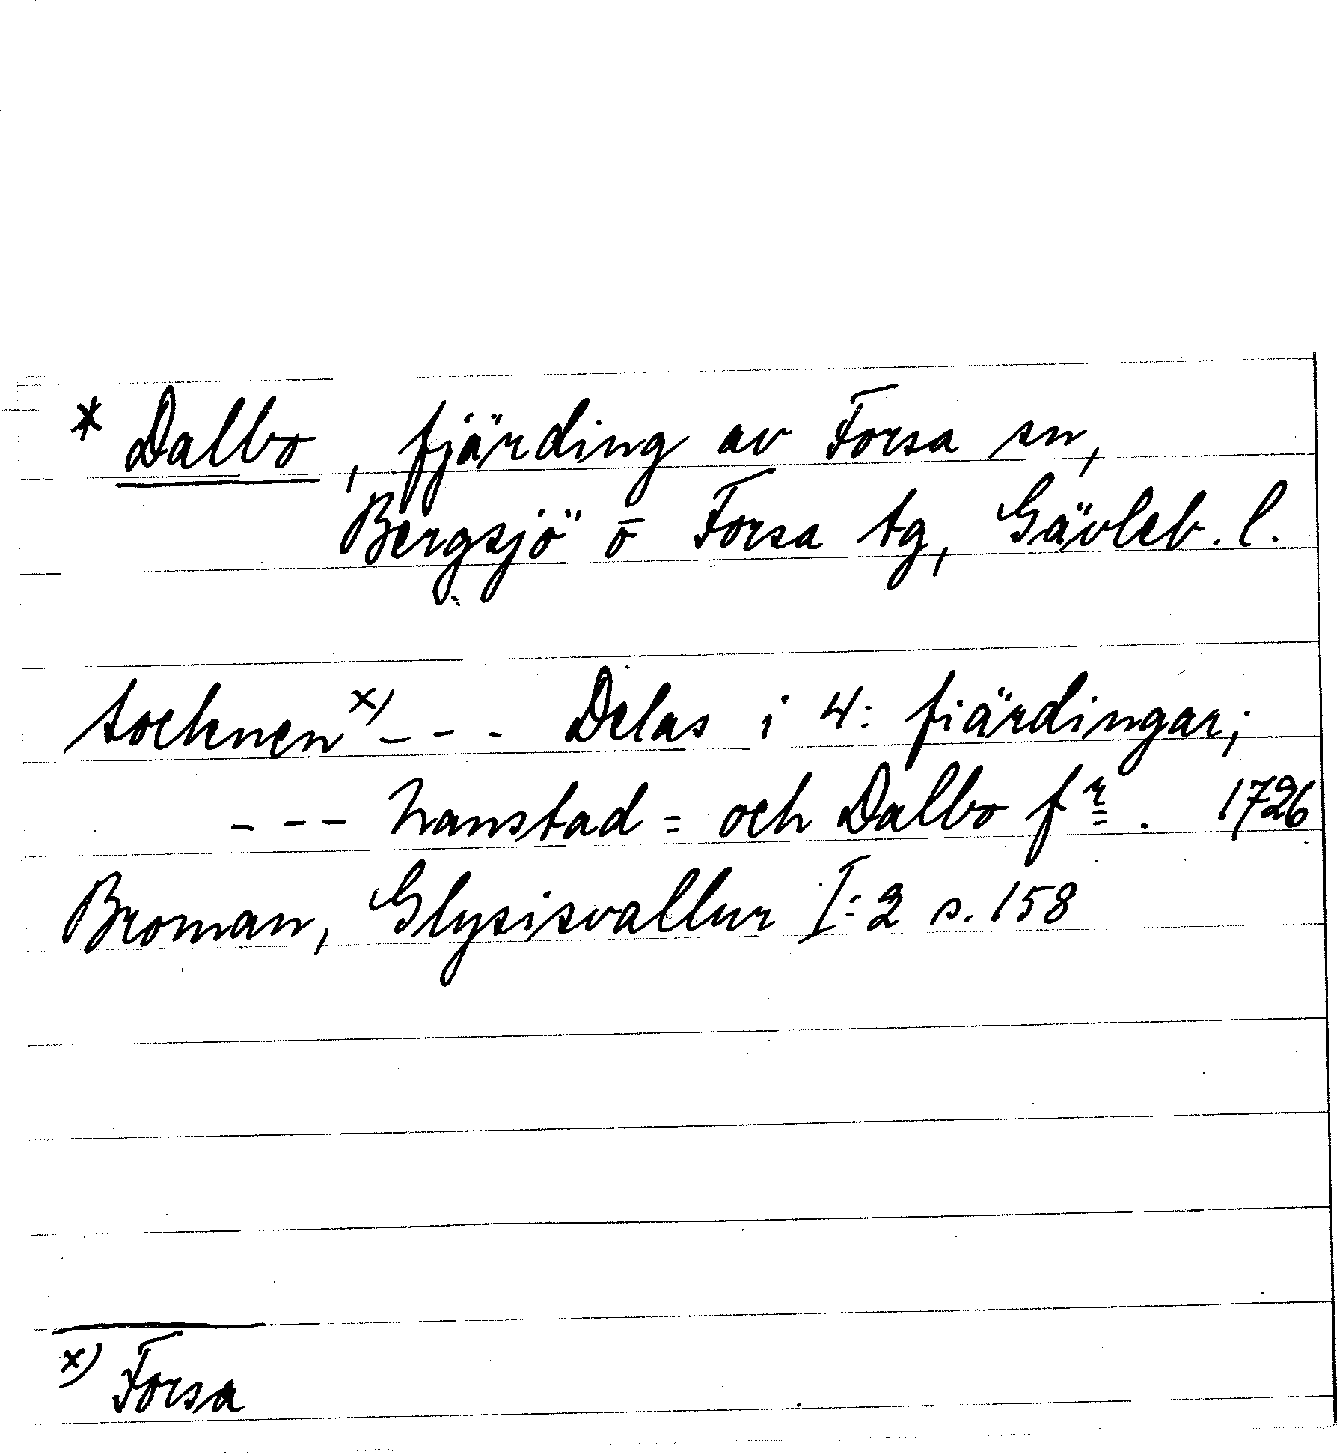 * Dalbo, fjärding av Forsa sn,
Bergsjö o Forsa tg, Gävleb. l.
Socknen x) - - - Delas i 4: fiärdingar;
- - - Nanstad = och Dalbo fr. 1726
Broman, Glysisvallur I:2 s. 158
x) Forsa